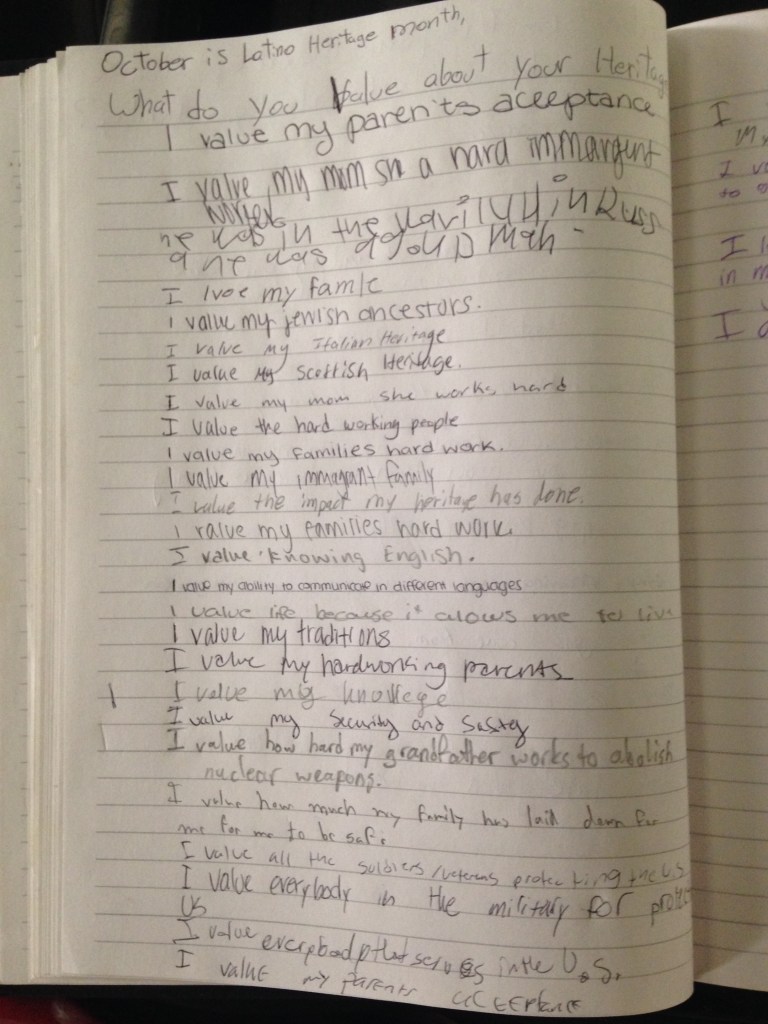 October is Latino Heritage month,
What do you Value about your Heritag
I value my parents aceeptance
I value my mom sh a hard immargunt
worker
he was in the navily U in Russ
a he was a gouD Man
I lvoe my famlc
I value my jewish ancestors.
I value my Italian Heritage
I value my Scottish Heritage.
I value my mom she works hard
I value the hard working people
I value my families hard work.
I value my immagant family
I value the impact my heritage has done.
I value my families hard work.
I value knowing English.
I value my ability to communicate in different languages
I value life because it alows me to live
I value my traditions
I value my hardworking parents
I value my knowlege
I value my Security and Saftey
I value how hard my grandfather works to abolish
nuclear weapons.
I value how much my family has laid down for
me for me to be safe
I value all the soldiers/veterans protecting the U.S
I value everybody in the military for protec
us
I value that serves in the U.S.
I value my parents acceptance
I
m
I va
to
I l
in m
I